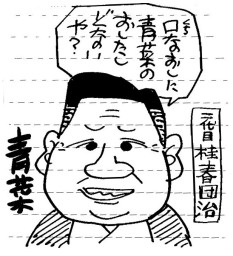 口なおしに
青菜の
おしたし
どない
や?
二代目桂春団治
青菜